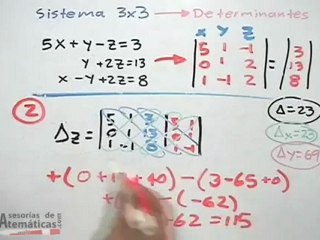 Sistema 3x3 → Determinantes
x y z
5x+y-z=3
y+2z=13
x-y+2z=8
| 5 1 -1 | | 3 |
| 0 1 2 | = | 13 |
| 1 -1 2 | | 8 |
2
Δ=23
Δz =
| 5 1 3 | 5 1 |
| 0 1 13 | 0 1 |
| 1 -1 8 | 1 -1 |
Δx=23
Δy=69
+(0+13+40)-(3-65+0)
-(-62)
-62=115
asesorías de
Matemáticas.com